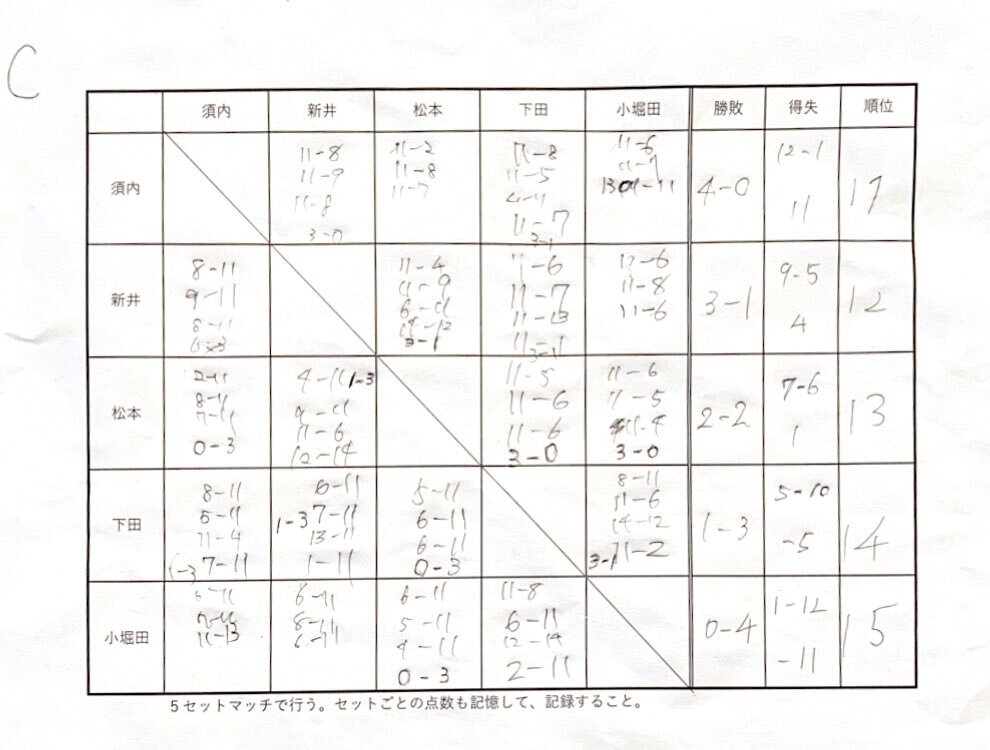 C
須内 新井 松本 下田 小堀田 勝敗 得失 順位
須内
11-8
11-9
11-8
3-0
11-2
11-8
11-7
11-8
11-5
4-11
11-7
3-1
11-6
11-7
13-11
4-0
12-1
11
1
新井
8-11
9-11
8-11
0-3
11-4
11-9
6-11
14-12
3-1
11-6
11-7
11-13
11-1
3-1
11-8
11-6
3-1
9-5
4
2
松本
2-11
8-11
7-11
0-3
4-11 1-3
9-11
11-6
12-14
11-5
11-6
11-6
3-0
11-6
11-5
11-4
3-0
2-2
7-6
1
3
下田
8-11
5-11
11-4
1-3 7-11
6-11
1-3 7-11
13-11
1-11
5-11
6-11
6-11
0-3
8-11
11-6
14-12
3-1 11-2
1-3
5-10
-5
4
小堀田
6-11
7-11
11-13
6-11
8-11
6-11
6-11
5-11
4-11
0-3
11-8
6-11
12-14
2-11
0-4
1-12
-11
5
5セットマッチで行う。セットごとの点数も記憶して、記録すること。